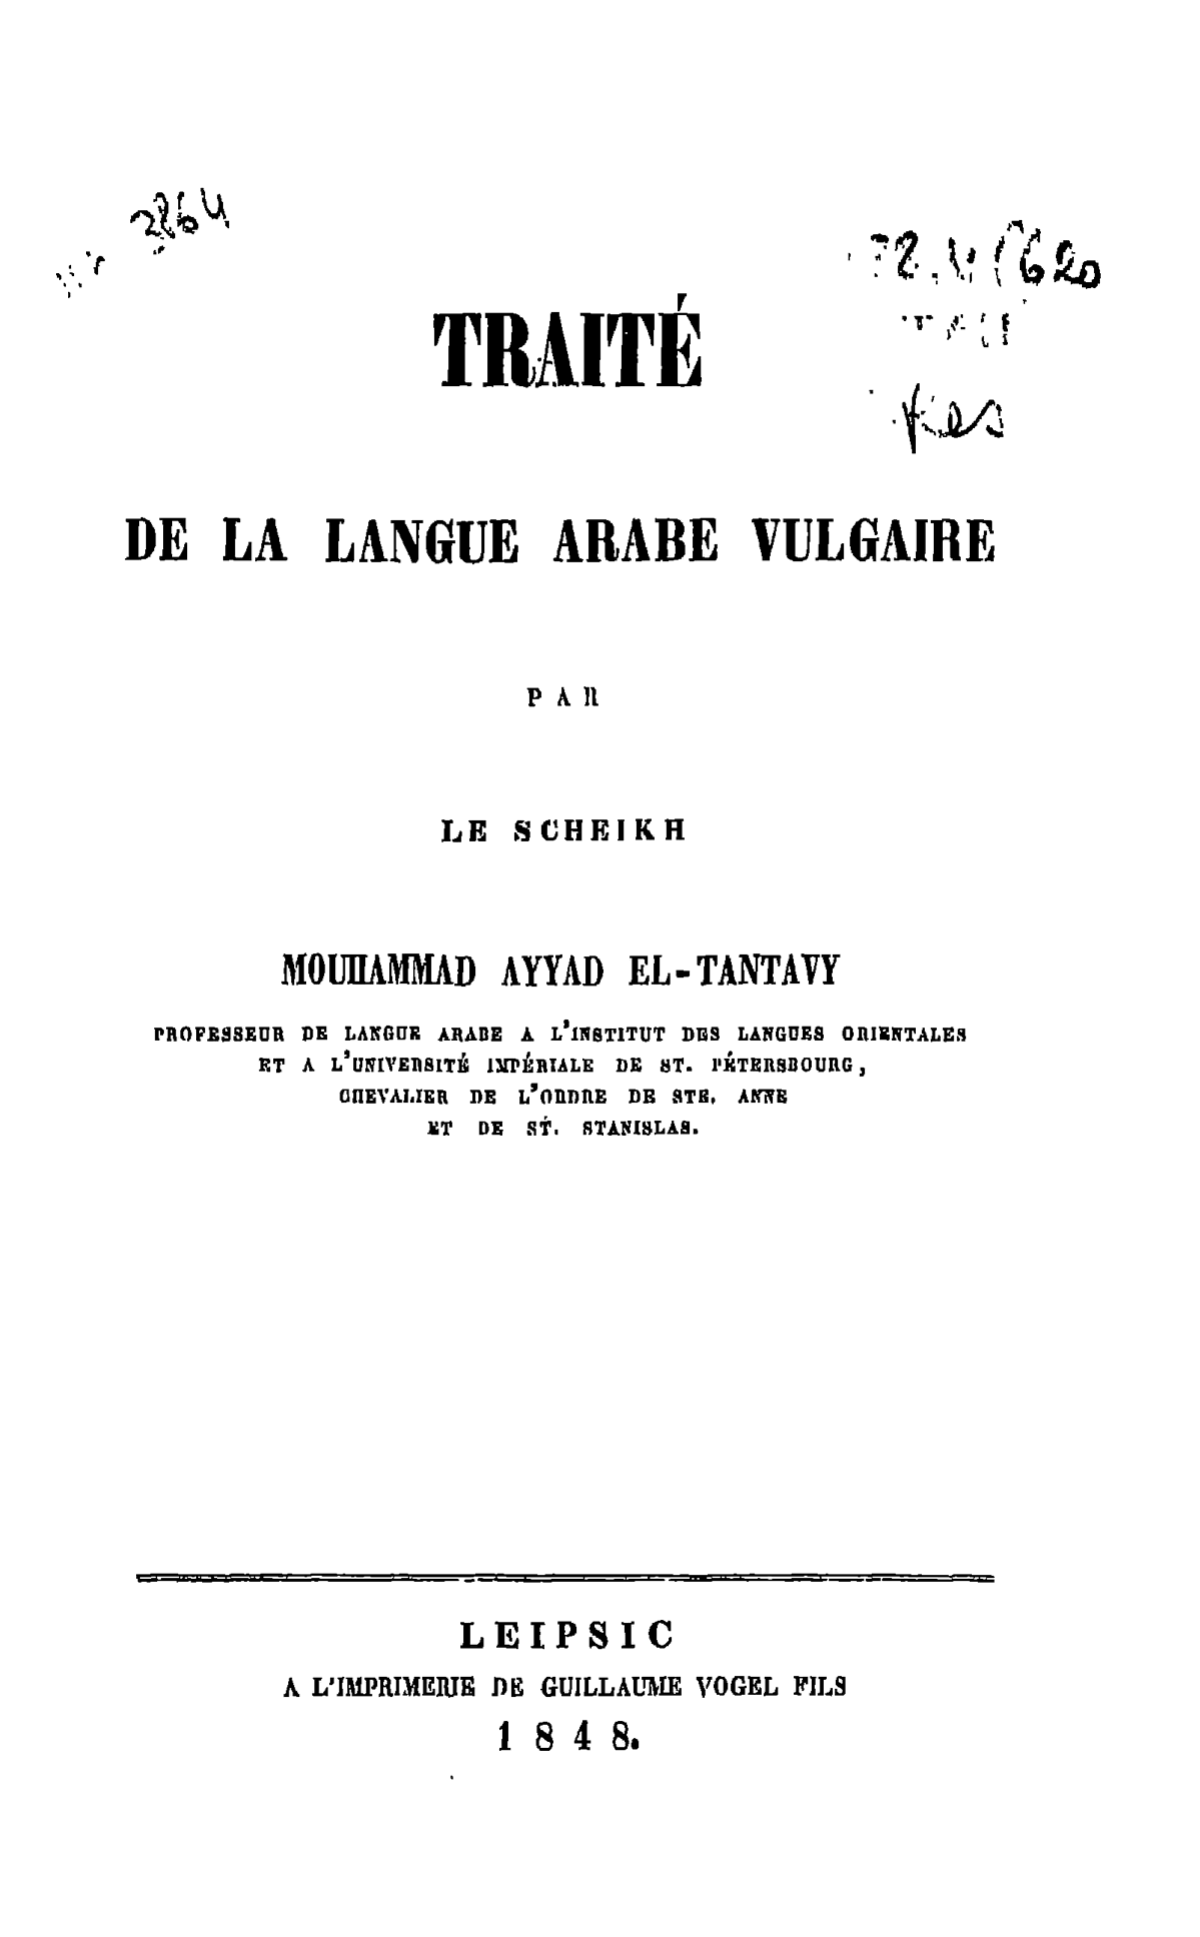 3864
TRAITÉ
DE LA LANGUE ARABE VULGAIRE
PAR
LE SCHEIKH
MOUHAMMAD AYYAD EL-TANTAVY
PROFESSEUR DE LANGUE ARABE A L'INSTITUT DES LANGUES ORIENTALES
ET A L'UNIVERSITÉ IMPÉRIALE DE ST. PÉTERSBOURG,
CHEVALIER DE L'ORDRE DE STE. ANNE
ET DE ST. STANISLAS.
LEIPSIC
A L'IMPRIMERIE DE GUILLAUME VOGEL FILS
1848.